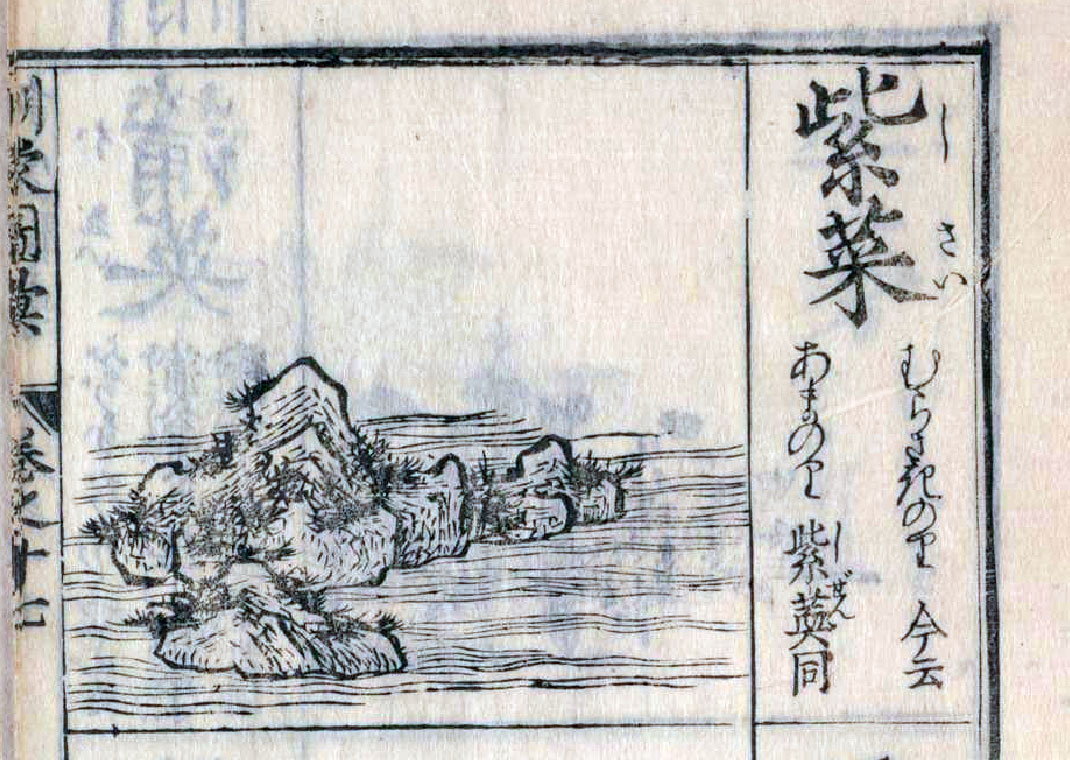 紫菜
しさい
むらさきのり 今云
あまのり 紫䓴同
しぜん
訓蒙圖彙